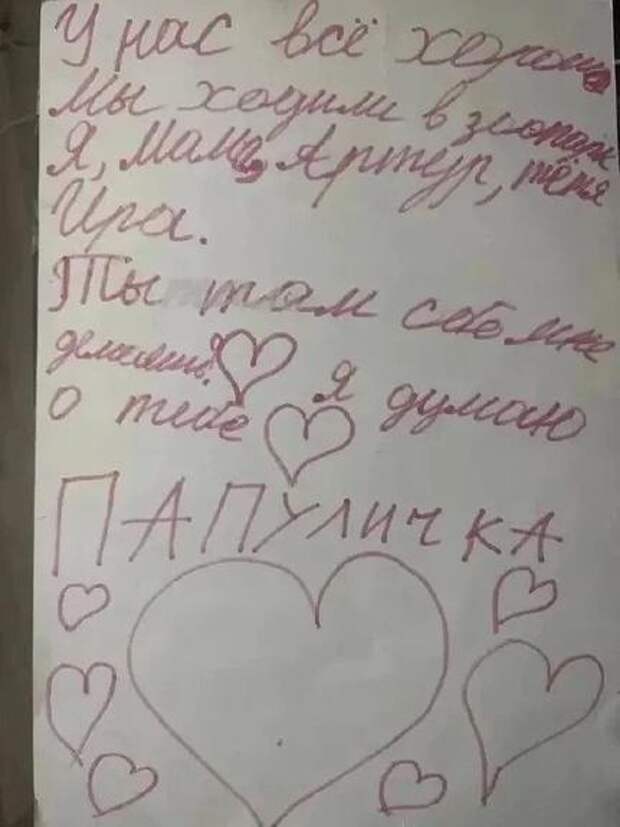 У нас всё хорошо
Мы ходили в зоопарк
Я, Мама, Артур, тётя
Ира.
Ты там себе мне
делаешь?
Я думаю
о тебе
ПАПУЛИЧКА